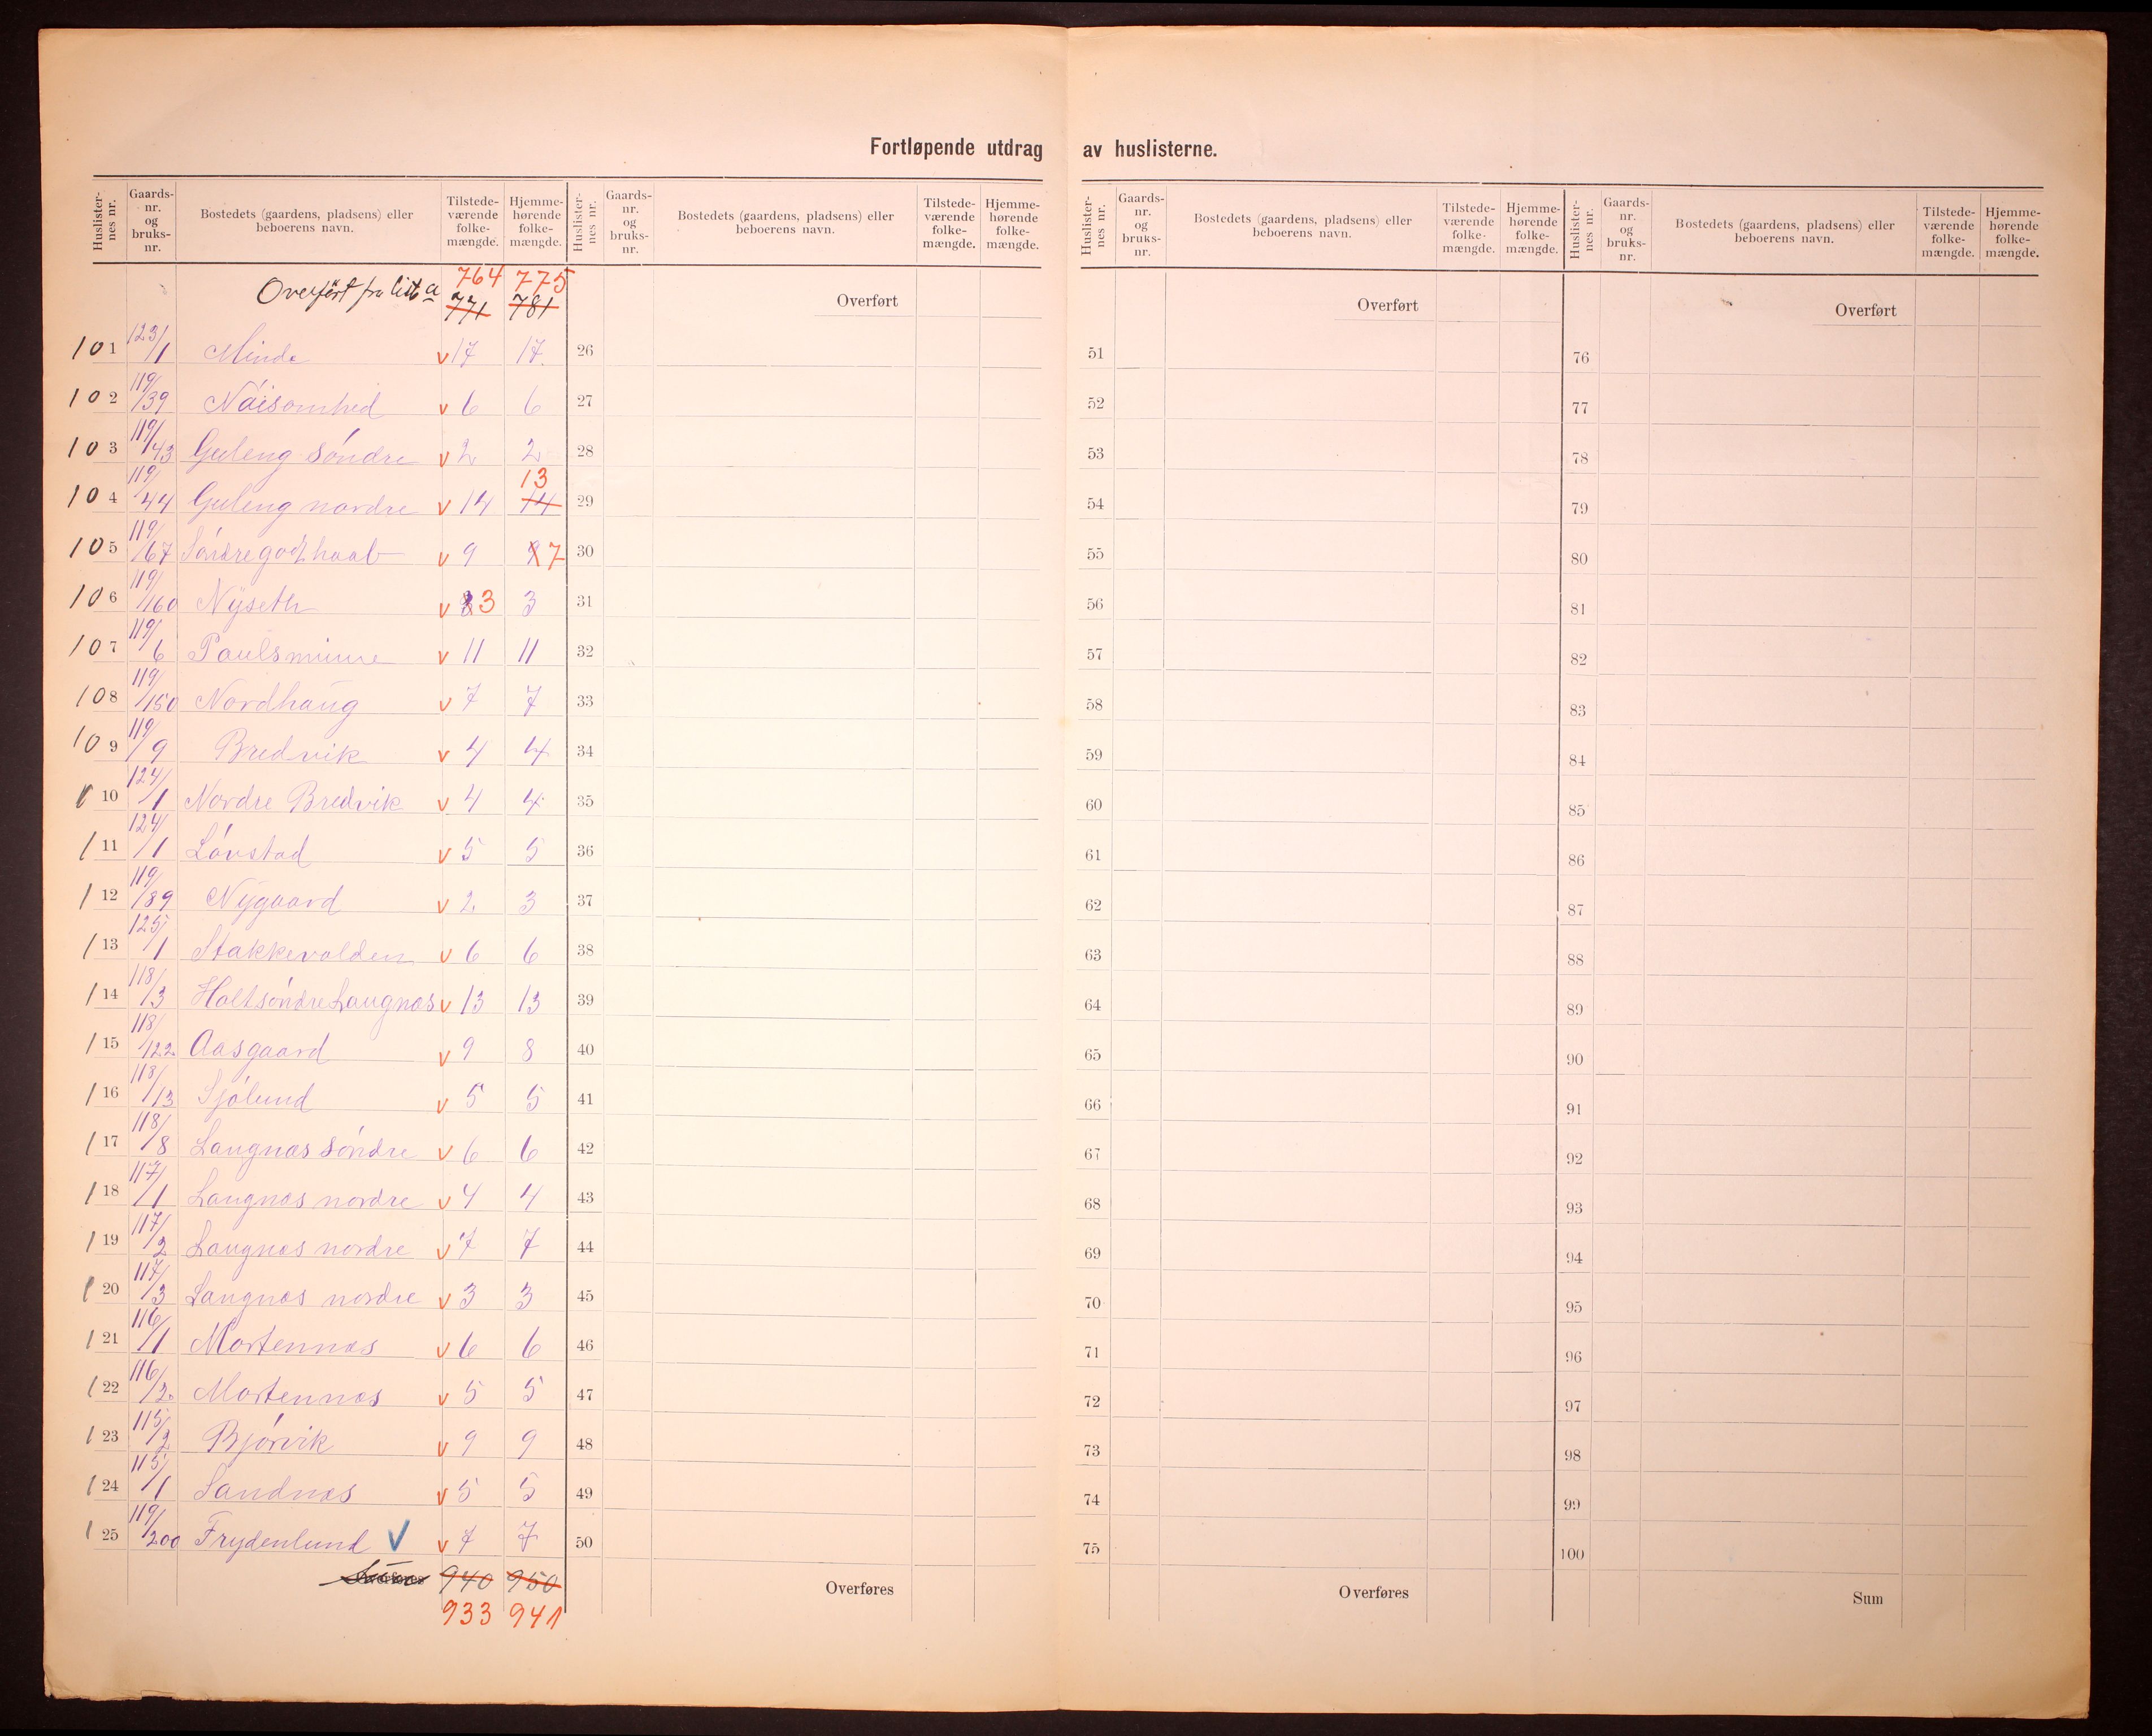 Fortløpende utdrag av huslisterne.
Huslister-nes nr. Gaards-nr. og bruks-nr. Bostedets (gaardens, pladsens) eller beboerens navn. Tilstede-værende folke-mængde. Hjemme-hørende folke-mængde.
Huslister-nes nr. Gaards-nr. og bruks-nr. Bostedets (gaardens, pladsens) eller beboerens navn. Tilstede-værende folke-mængde. Hjemme-hørende folke-mængde.
Huslister-nes nr. Gaards-nr. og bruks-nr. Bostedets (gaardens, pladsens) eller beboerens navn. Tilstede-værende folke-mængde. Hjemme-hørende folke-mængde.
Huslister-nes nr. Gaards-nr. og bruks-nr. Bostedets (gaardens, pladsens) eller beboerens navn. Tilstede-værende folke-mængde. Hjemme-hørende folke-mængde.
764 775
Overført fra liste a 771 781
101 123/1 Minde v 17 17
102 119/39 Nöisomhed v 6 6
103 119/43 Guleng Söndre v 2 2
104 119/44 Guleng nordre v 14 14 13
105 119/67 Söndre godthaab v 9 9 7
106 119/160 Nyseth v 3 3
107 119/6 Paulsminne v 11 11
108 119/150 Nordhaug v 7 7
109 119/9 Bredvik v 4 4
110 124/1 Nordre Bredvik v 4 4
111 124/1 Lövstad v 5 5
112 119/89 Nygaard v 2 3
113 125/1 Stakkevolden v 6 6
114 118/3 Holt söndre Langnæs v 13 13
115 118/122 Aasgaard v 9 8
116 118/113 Sjölund v 5 5
117 118/8 Langnæs Söndre v 6 6
118 117/1 Langnæs nordre v 4 4
119 117/2 Langnæs nordre v 7 7
120 117/3 Langnæs nordre v 3 3
121 116/1 Mortennæs v 6 6
122 116/2 Mortennæs v 5 5
123 115/2 Bjórvik v 9 9
124 115/1 Sandnæs v 5 5
125 119/200 Frydenlund V v 7 7
940 950
933 941
Overført
26
27
28
29
30
31
32
33
34
35
36
37
38
39
40
41
42
43
44
45
46
47
48
49
50
Overføres
Overført
51
52
53
54
55
56
57
58
59
60
61
62
63
64
65
66
67
68
69
70
71
72
73
74
75
Overføres
Overført
76
77
78
79
80
81
82
83
84
85
86
87
88
89
90
91
92
93
94
95
96
97
98
99
100
Sum